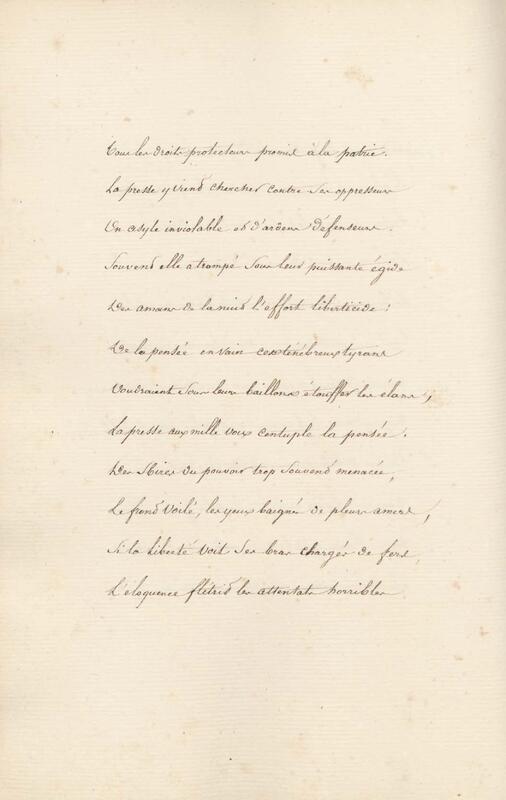 Tous les droits protecteurs promis à la patrie.
La presse y vient chercher contre ses oppresseurs
Un asyle inviolable et d'ardens défenseurs.
Souvent elle a trompé sous leur puissante égide
Des amans de la nuit l'effort liberticide :
De la pensée en vain ces ténébreux tyrans
Voudraient sous leurs baillons étouffer les élans,
La presse aux mille voix centuple la pensée.
Des Sbires du pouvoir trop souvent menacée,
Le front voilé, les yeux baignés de pleurs amers,
Si la liberté voit ses bras chargés de fers,
L'éloquence flétrit les attentats horribles